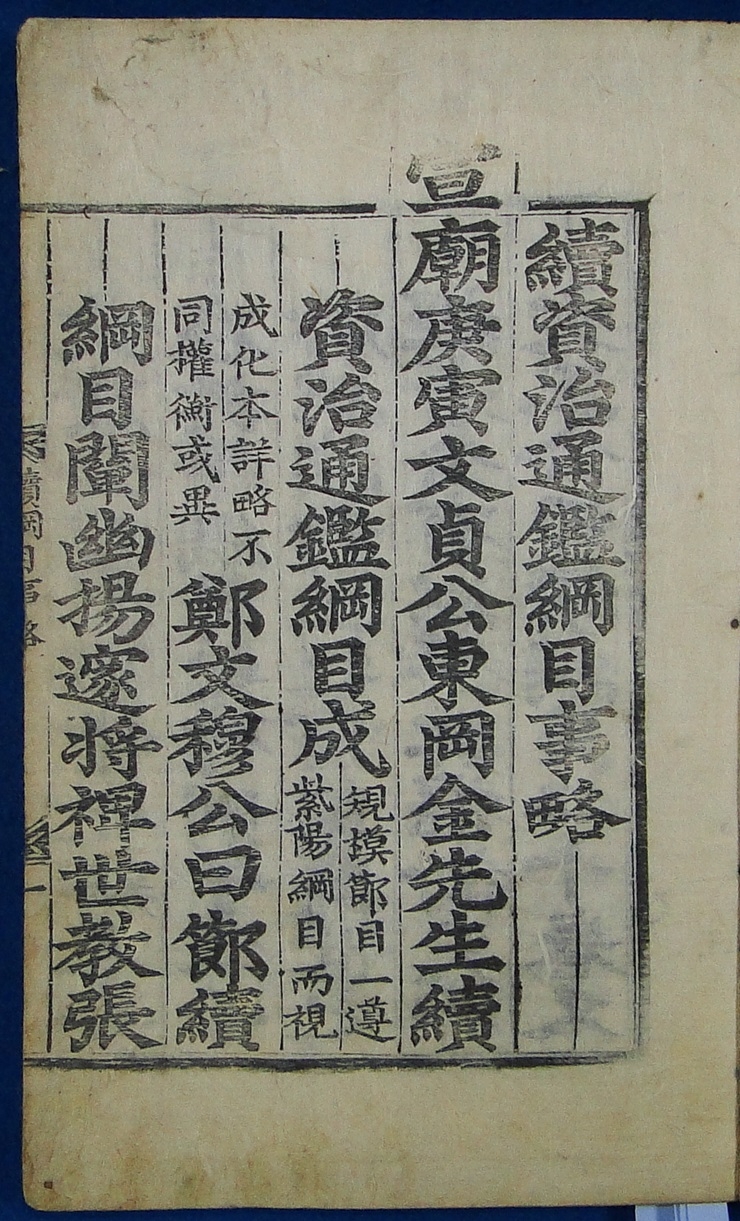 續資治通鑑綱目事略
宣廟庚寅文貞公東岡金先生續
資治通鑑綱目成
規模節目一遵
紫陽綱目而視
成化本詳略不
同權衡或異
鄭文穆公曰節續
綱目闡幽揚邃將裨世教張
續綱目事略
一